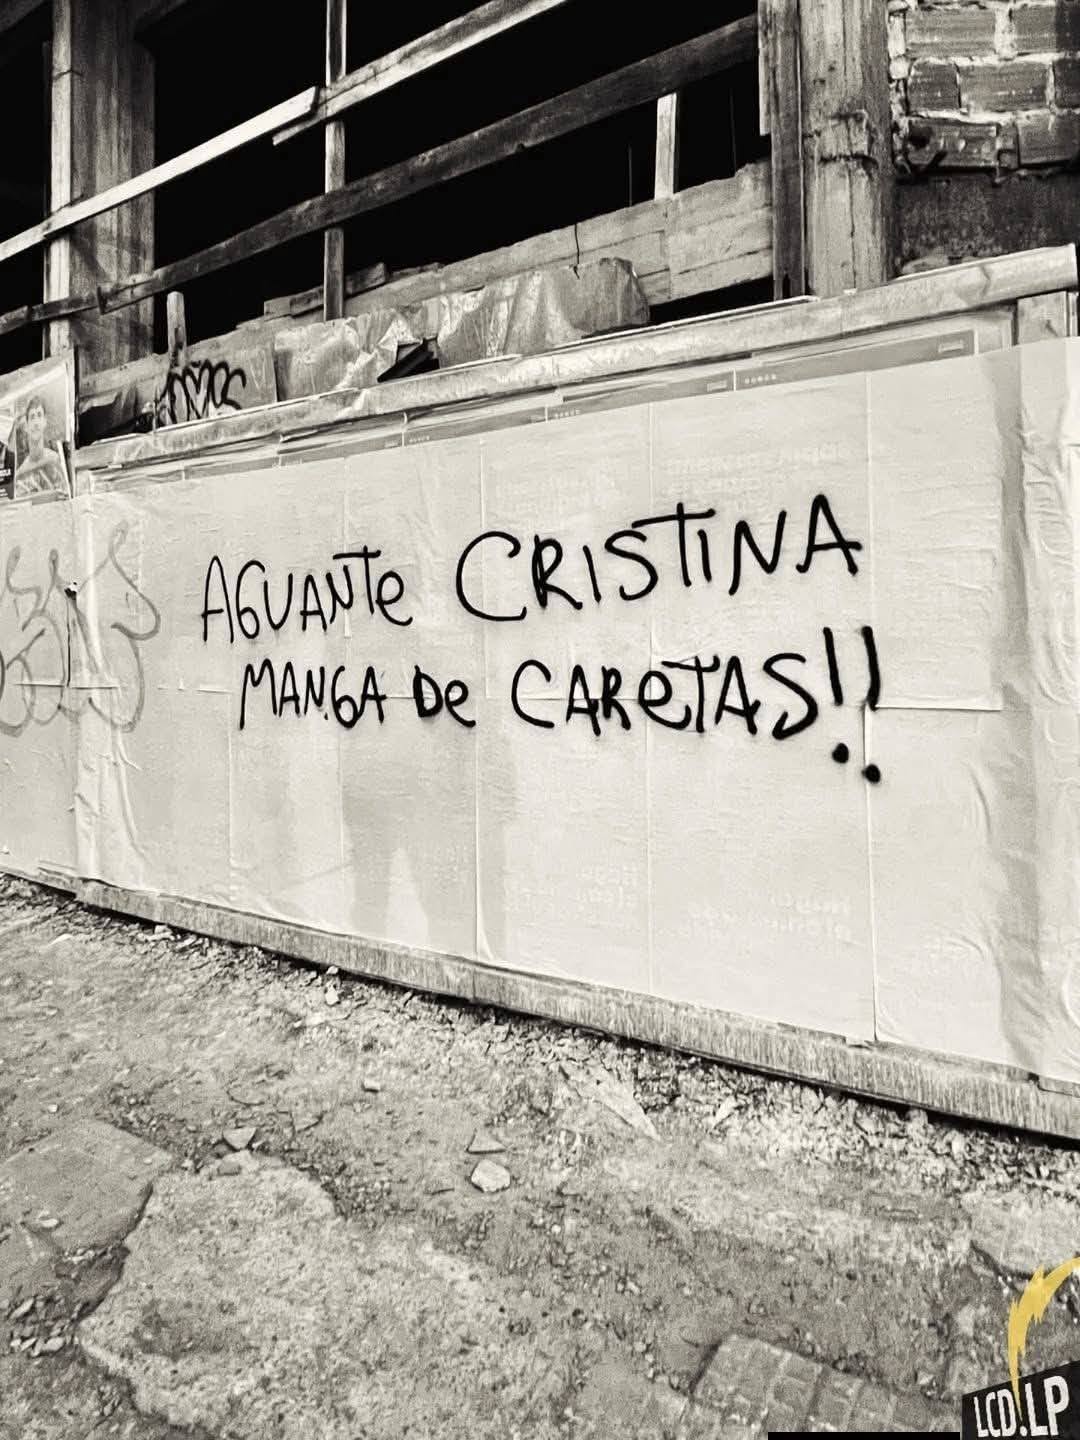 AGUANTe CRISTINA
MANGA De CAReTAS!!
LCD!LP